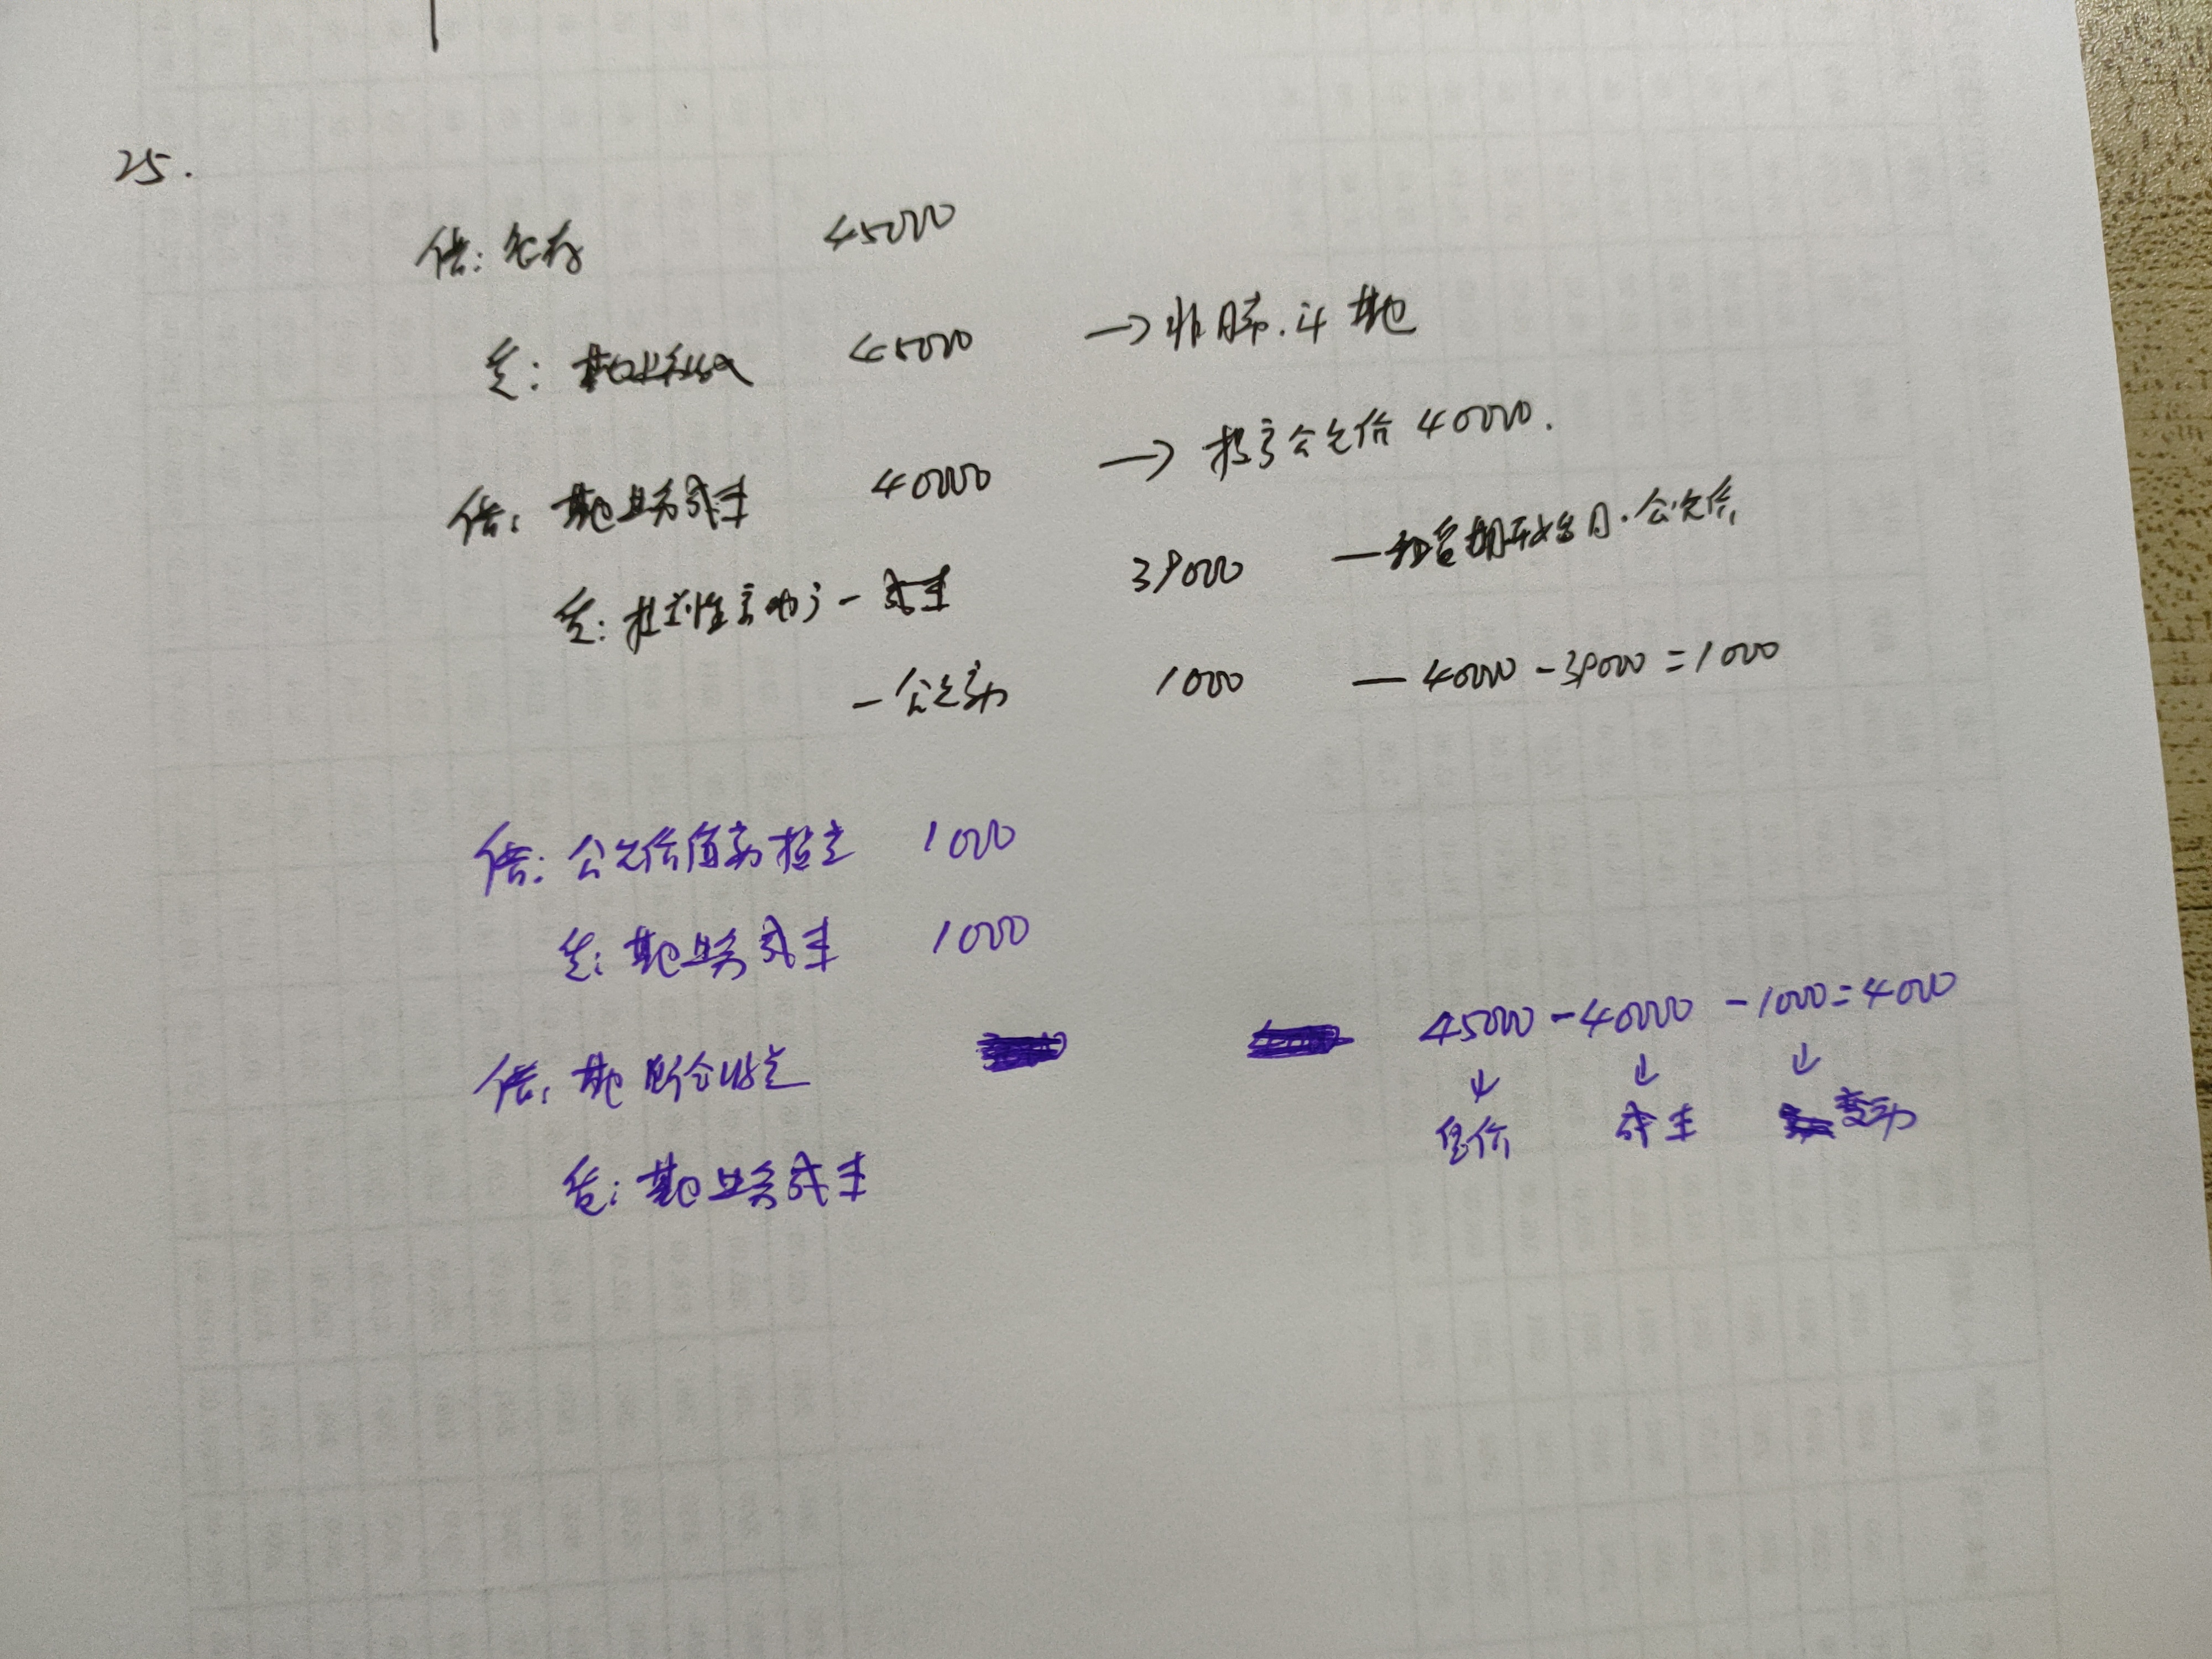 25.
借: 银存 45000
贷: 其他业务收入 45000 → 非月常.计 其他
借: 其他业务成本 40000 → 投房公允价 40000.
贷: 投资性房地产 - 成本 39000 — 租赁期开始日.公允价
- 公允变动 1000 — 40000 - 39000 = 1000
借: 公允价值变动损益 1000
贷: 其他业务成本 1000
45000 - 40000 - 1000 = 4000
借: 其他综合收益
↓ ↓ ↓
售价 成本 变动
贷: 其他业务成本